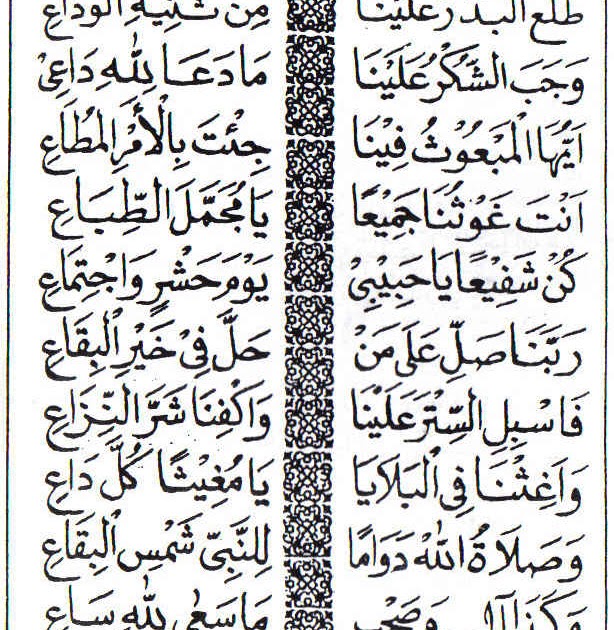 طَلَعَ الْبَدْرُ عَلَيْنَا مِنْ ثَنِيَّةِ الْوَدَاعِ
وَجَبَ الشُّكْرُ عَلَيْنَا مَا دَعَا لِلّٰهِ دَاعِيْ
اَيُّهَا الْمَبْعُوْثُ فِيْنَا جِئْتَ بِالْأَمْرِ الْمُطَاعِ
اَنْتَ غَوْثُنَا جَمِيْعًا يَا مُجَمَّلَ الطِّبَاعِ
كُنْ شَفِيْعًا يَا حَبِيْبِيْ يَوْمَ حَشْرٍ وَاجْتِمَاعِ
رَبَّنَا صَلِّ عَلَى مَنْ حَلَّ فِيْ خَيْرِ الْبِقَاعِ
فَاسْبِلِ السِّتْرَ عَلَيْنَا وَاكْفِنَا شَرَّ النِّزَاعِ
وَاَغِثْنَا فِي الْبَلَايَا يَا مُغِيْثًا كُلَّ دَاعِ
وَصَلَاةُ اللّٰهِ دَوَامًا لِلنَّبِيِّ شَمْسِ الْبِقَاعِ
وَكَذَا آلٍ وَصَحْبٍ مَا سَعَى لِلّٰهِ سَاعِ